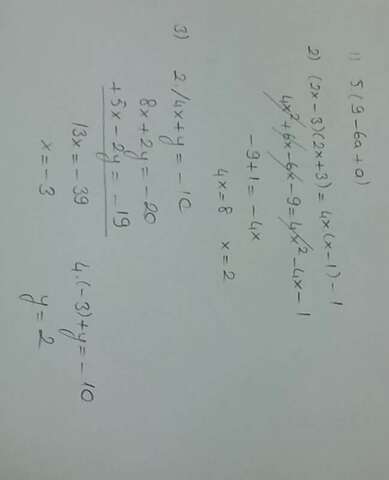 1) 5(9-6a+a)
2) (2x-3)(2x+3)=4x(x-1)-1
4x²+6x-6x-9=4x²-4x-1
-9+1=-4x
4x=8 x=2
3) 2/4x+y=-10
8x+2y=-20
+5x-2y=-19
13x=-39
x=-3
4.(-3)+y=-10
y=2